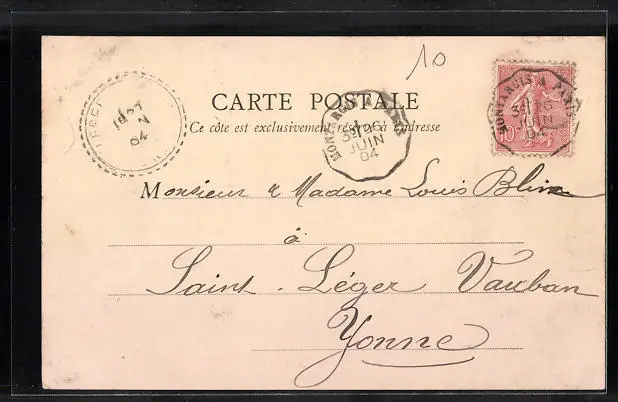 10
CARTE POSTALE
Ce côte est exclusivement réservé à l'adresse
MONTARGIS A PARIS
26
JUIN
04
MONTARGIS A PARIS
26
JUIN
04
10c
27
04
Monsieur & Madame Louis Blin
à
Saint-Léger Vauban
Yonne